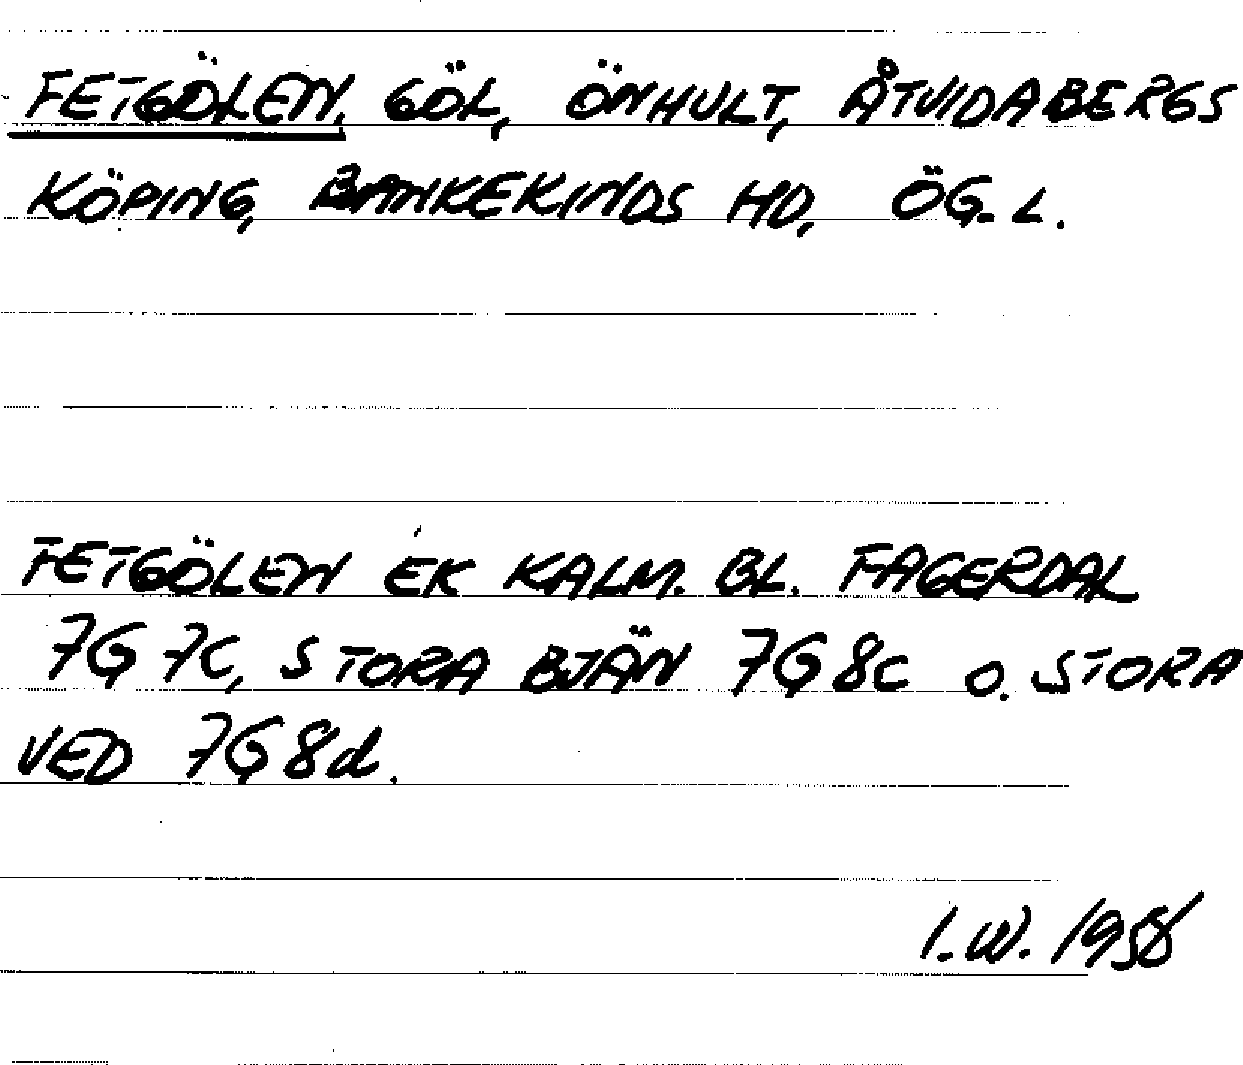 FETGÖLEN, GÖL, ÖNHULT, ÅTVIDABERGS
KÖPING, BANKEKINDS HD, ÖG. L.
FETGÖLEN EK KALM. BL. FAGERDAL
7G 7C, STORA BJÄN 7G 8C O. STORA
VED 7G 8d.
I.W. 1958